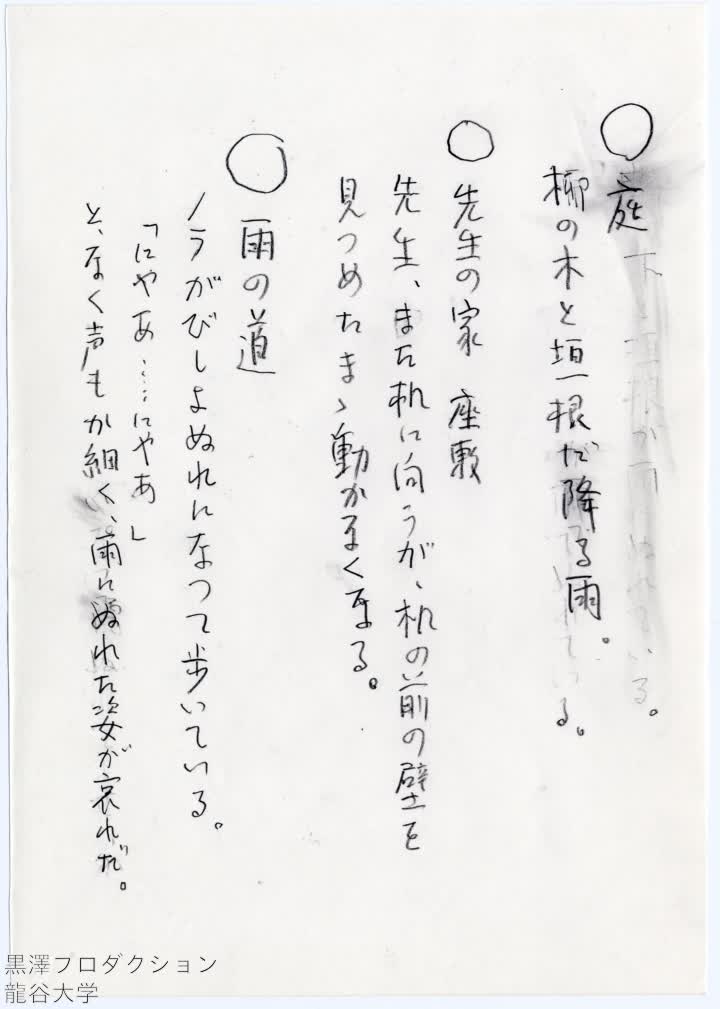 ○庭
柳の木と垣根だ降る雨。
○先生の家 座敷
先生、また机に向うが、机の前の壁を
見つめたまゝ動かなくなる。
○雨の道
ノラがびしよぬれになつて歩いている。
「にやあ……にやあ」
と、なく声もか細く、雨にぬれた姿が哀れだ。
黒澤プロダクション
龍谷大学